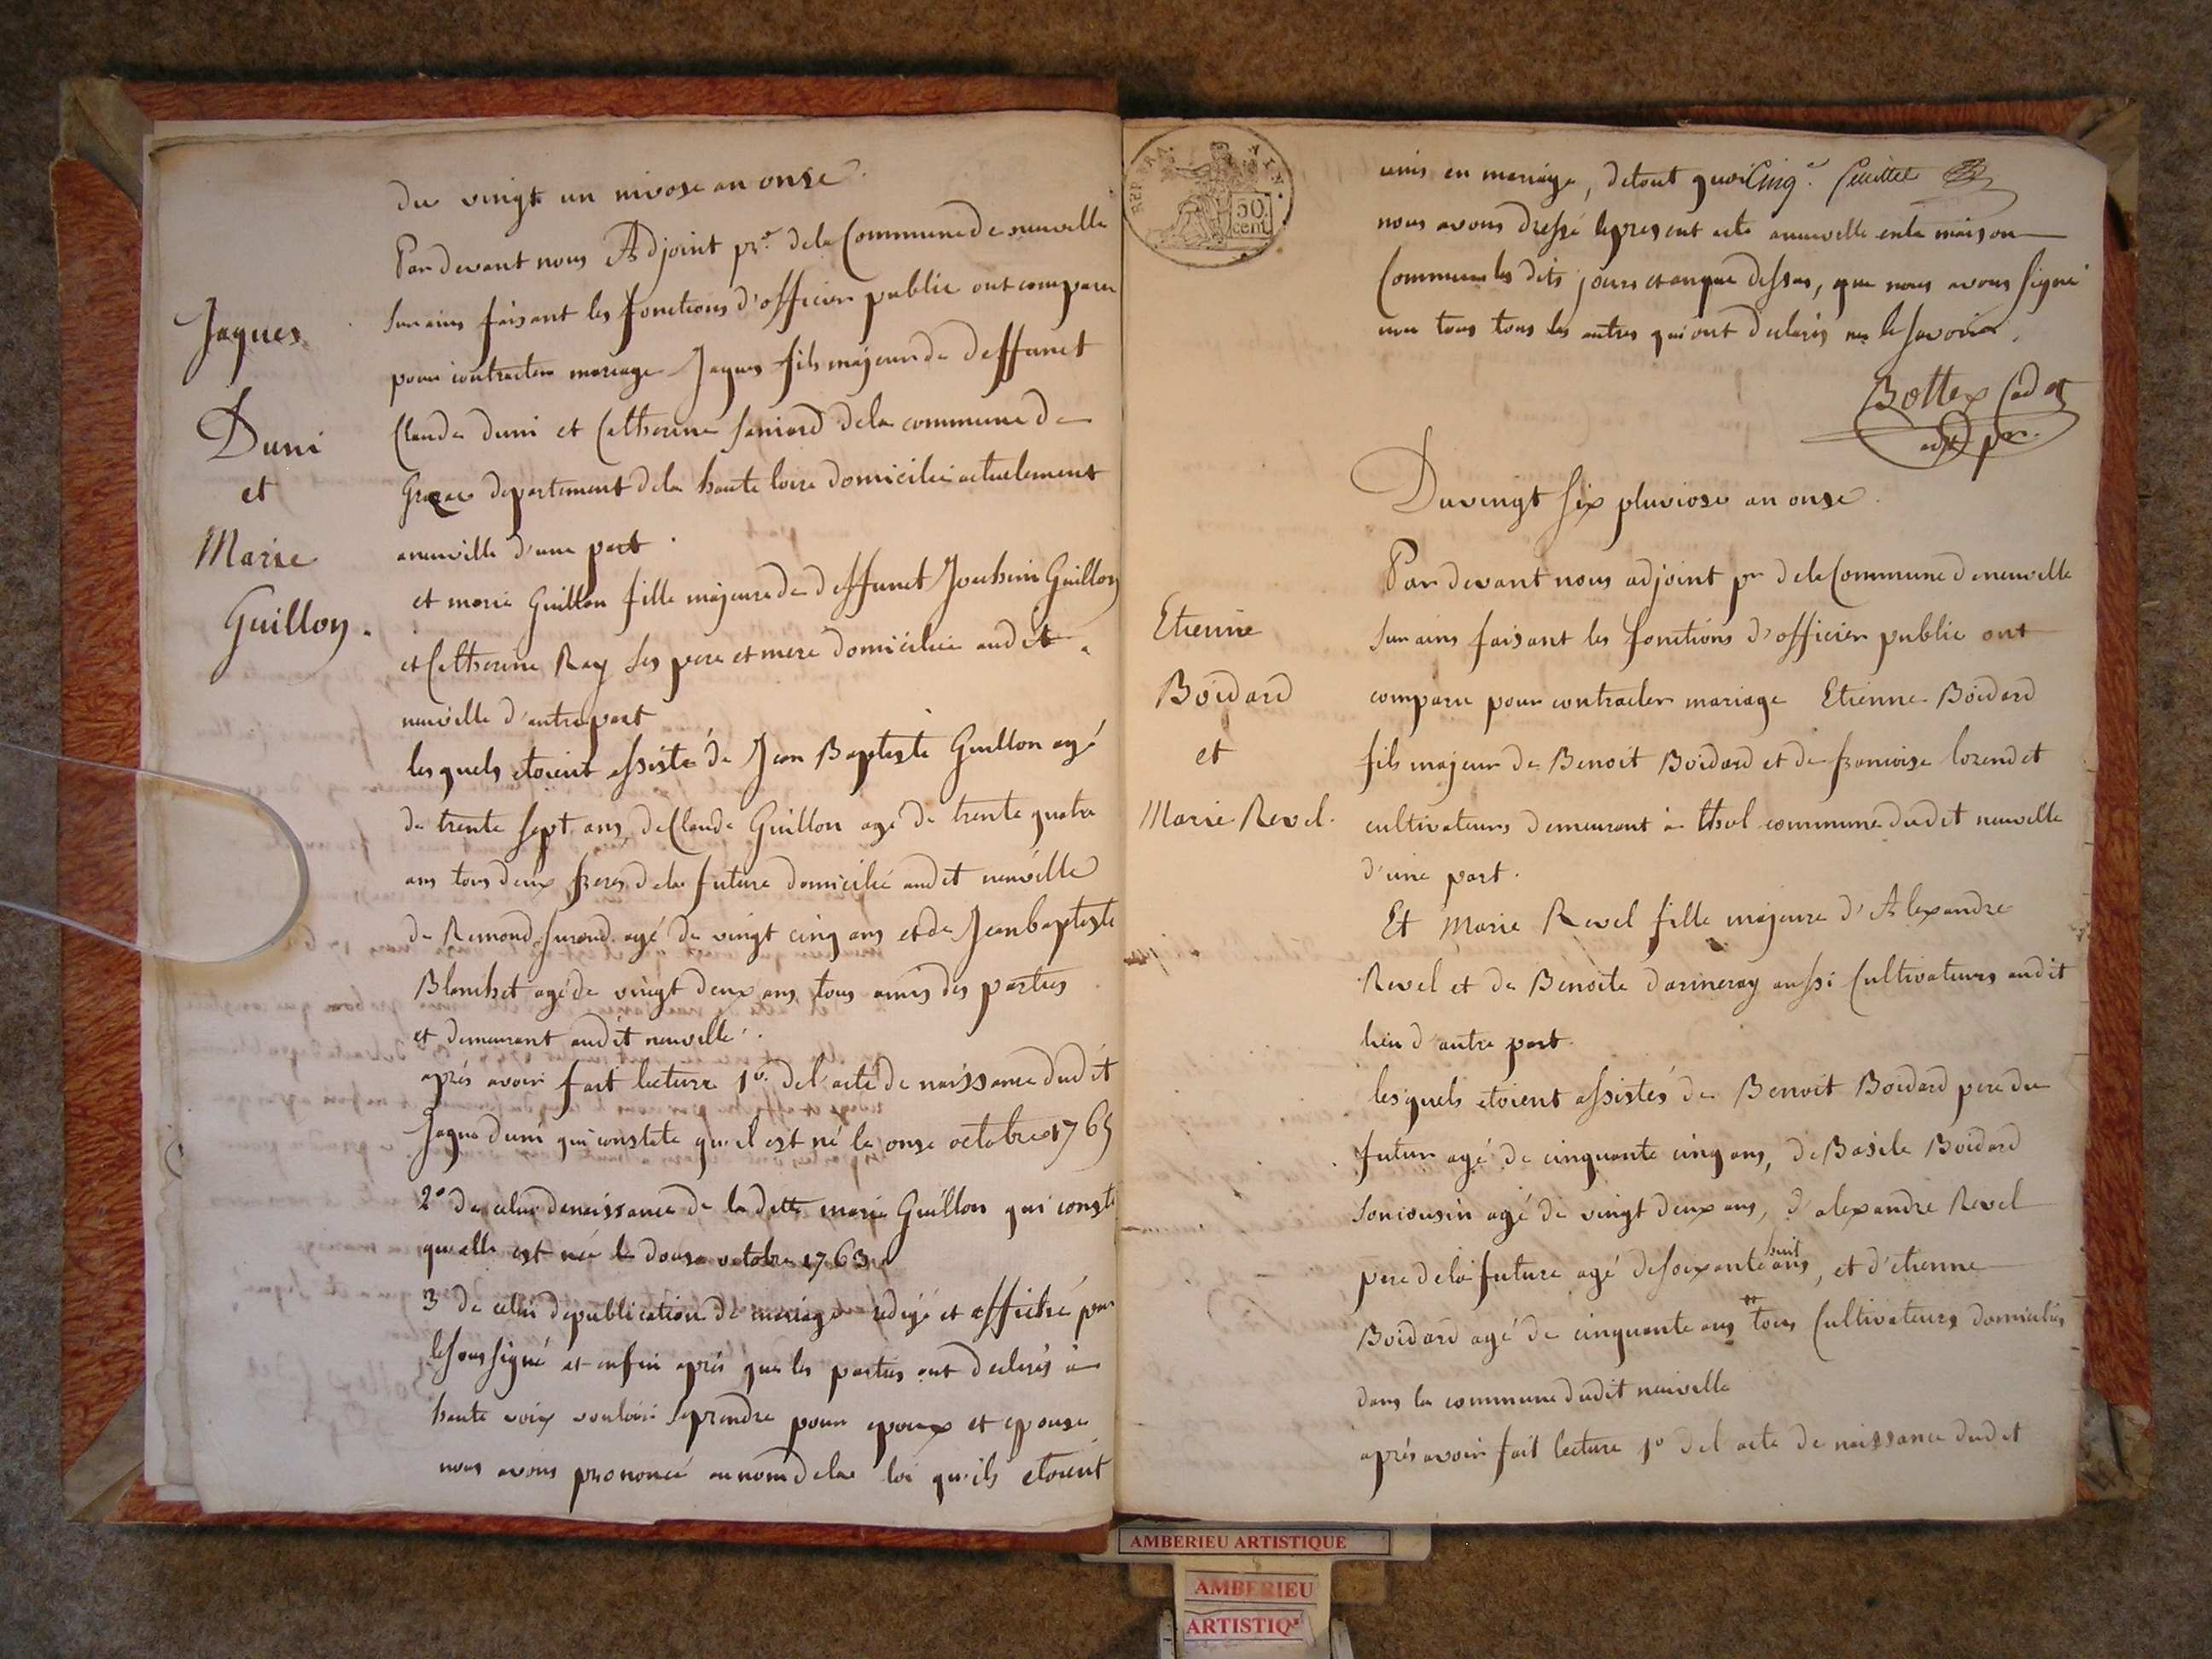 du vingt un nivose an onse
Par devant nous Adjoint pr. dela Commune de neuville
sur ains faisant les fonctions d'officier public ont comparu
pour contracter mariage Jaques fils majeur de deffunct
Claude duni et Catherine dela commune de
departement dela haute loire domicilié actuelement
aneuville d'une part.
et marie Guillon fille majeure de deffunct Joachim Guillon
et Catherine Ray ses pere et mere domiciliée audit
neuville d'autre part
lesquels etoient assisté de Jean Baptiste Guillon agé
de trente sept ans, de Claude Guillon agé de trente quatre
ans tous deux freres dela future domicilié audit neuville
de Remond agé de vingt cinq ans et de Jean baptiste
Blanchet agé de vingt deux ans tous amis des parties
et demeurant audit neuville.
après avoir fait lecture 1o. del'acte de naissance dudit
Jaque duni qui constate qu'il est né le onse octobre 1765
2o de celui de naissance de la ditte marie Guillon qui const
quelle est née le douse octobre 1763
3 de celui de publication de mariage redigé et affiché par
le soussigné et enfin après que les parties ont declarés à
haute voix vouloir se prendre pour epoux et epouse
nous avons prononcé au nom dela loi qu'ils etoient
Jaques
Duni
et
Marie
Guillon.
REP. FRA.
50
cent.
unis en mariage, detout quoi Cinq.e feuillet
nous avons dressé le present acte aneuville enla maison
Commune les dits jours et an que dessus, que nous avons signé
non tous les autres qui ont declarés ne le savoir.
Bottex Cadet
adjt pr.
Du vingt six pluviose an onse.
Par devant nous adjoint pr dela Commune de neuville
sur ains faisant les fonctions d'officier public ont
comparu pour contracter mariage Etienne Boidard
fils majeur de Benoit Boidard et de francoise lorendet
cultivateurs demeurant à thol commune dudit neuville
d'une part.
Et Marie Revel fille majeure d'Alexandre
Revel et de Benoite darmeray aussi Cultivateurs audit
lieu d'autre part.
lesquels etoient assistés de Benoit Boidard pere du
futur agé de cinquante cinq ans, de Basile Boidard
son cousin agé de vingt deux ans, d'alexandre Revel
pere dela future agé de soixante huit ans, et d'etienne
Boidard agé de cinquante ans tous Cultivateurs domiciliés
dans la commune dudit neuville
après avoir fait lecture 1o del acte de naissance dudit
Etienne
Boidard
et
Marie Revel.
AMBERIEU ARTISTIQUE
AMBERIEU
ARTISTIQ